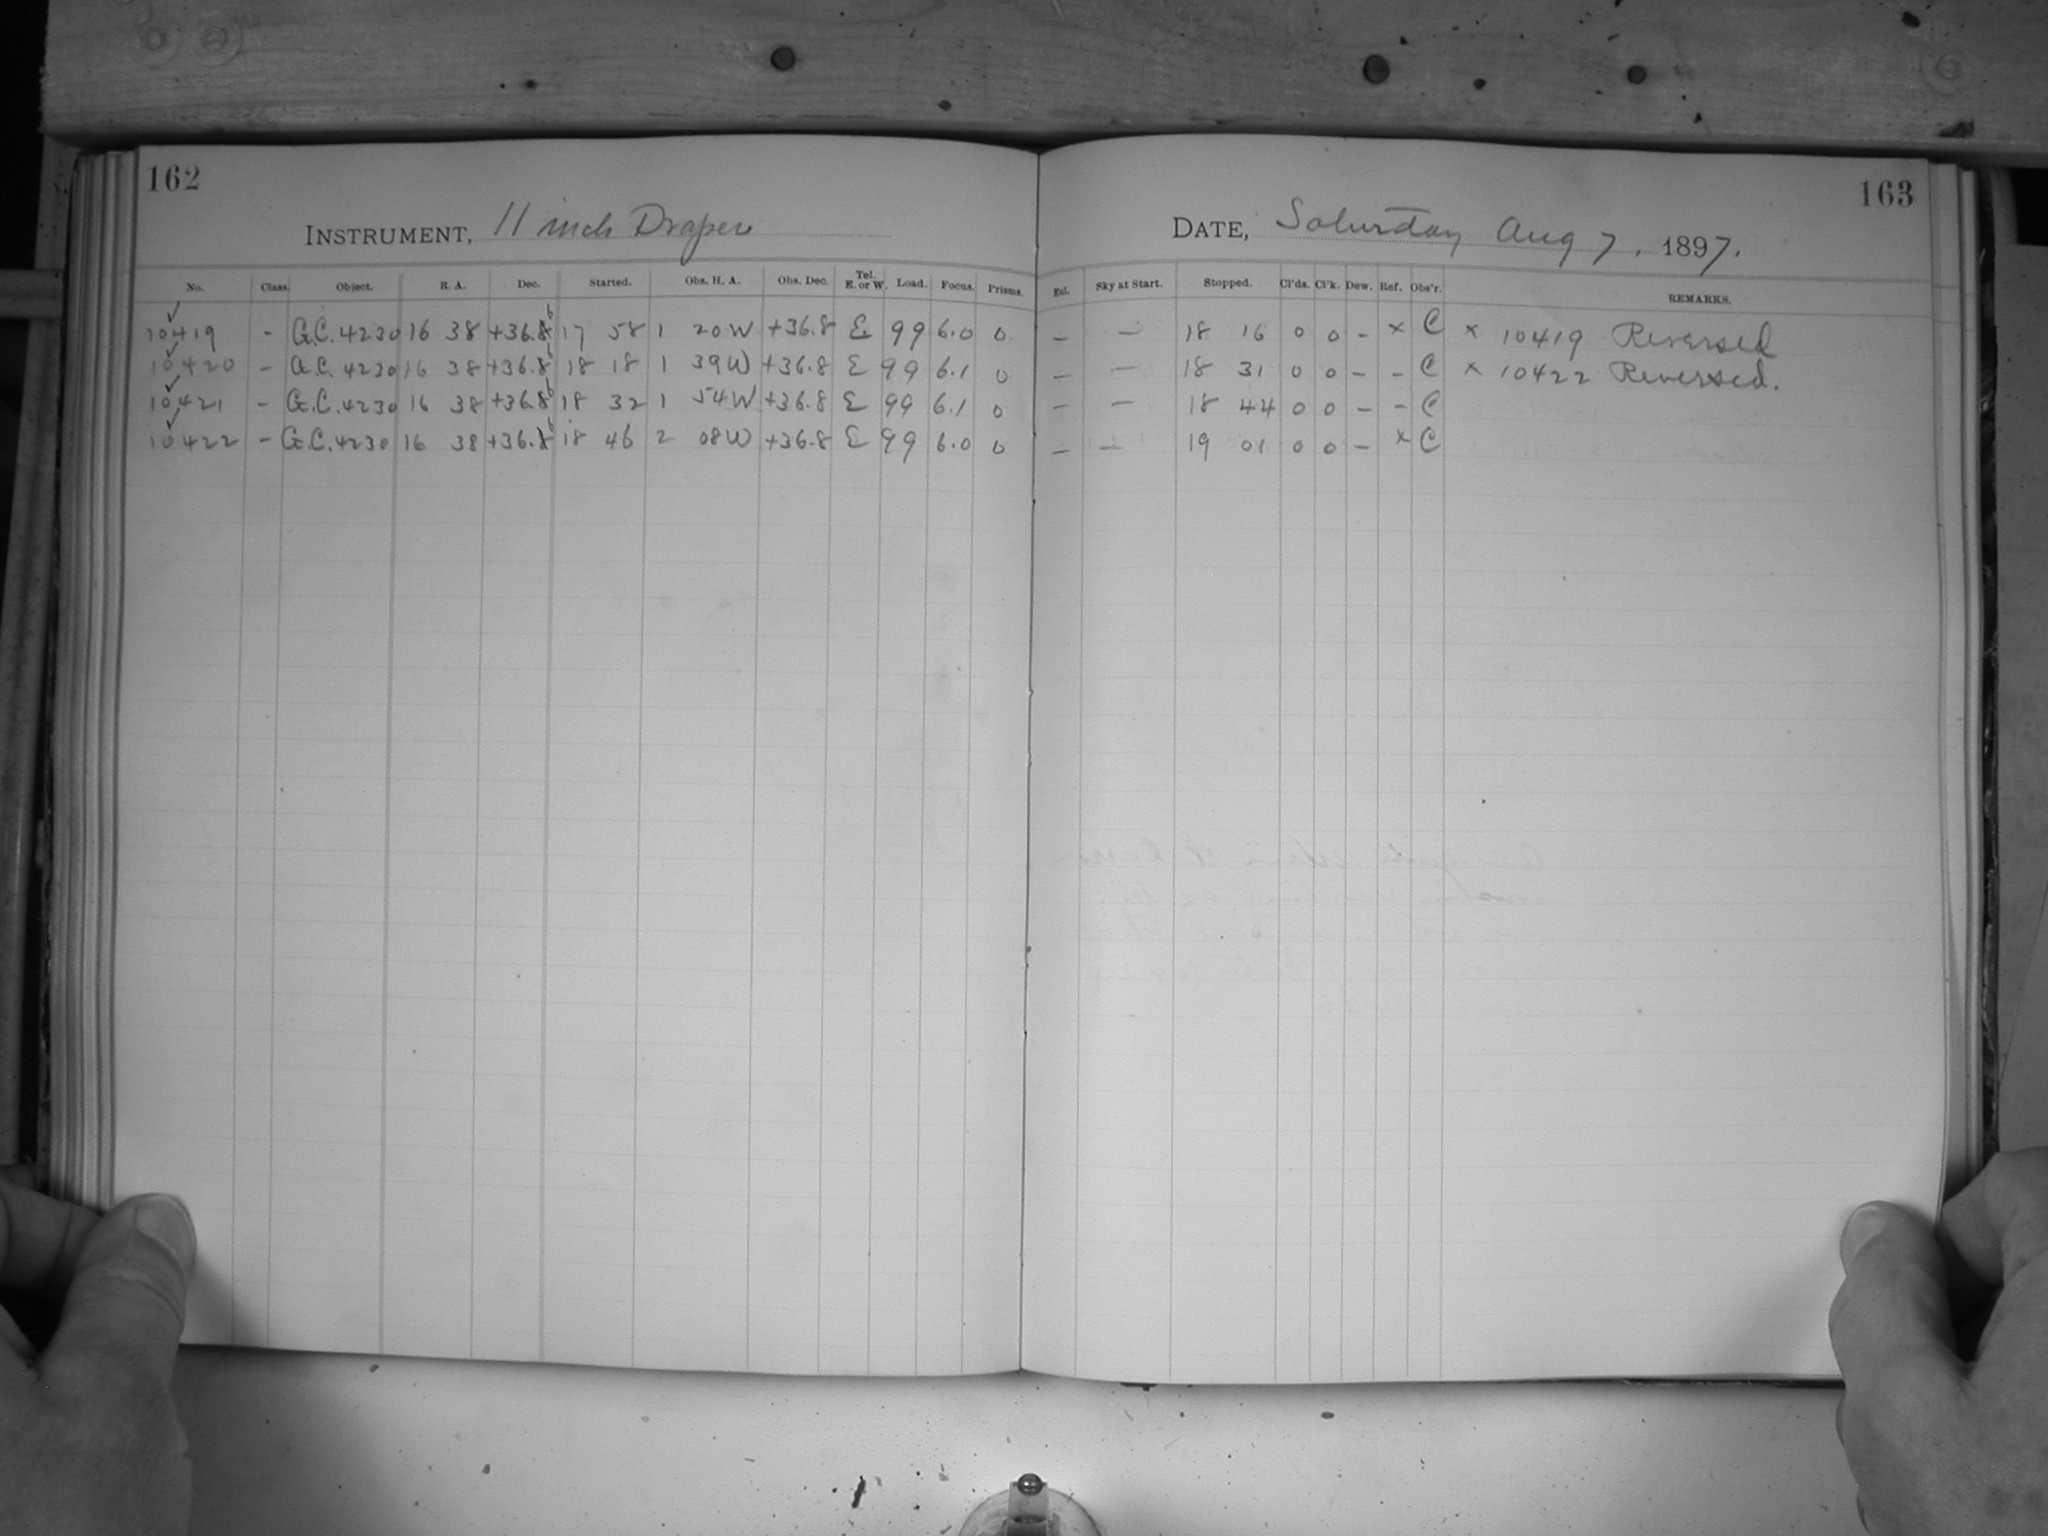 162
INSTRUMENT, 11 inch Draper
No. Class. Object. R. A. Dec. Started. Obs. H. A. Obs. Dec. Tel. E. or W. Load. Focus. Prisms.
✓ 10419 - G.C. 4230 16 38 +36.8 6 17 58 1 20 W +36.8 E 99 6.0 0
✓ 10420 - G.C. 4230 16 38 +36.8 6 18 18 1 39 W +36.8 E 99 6.1 0
✓ 10421 - G.C. 4230 16 38 +36.8 6 18 32 1 54 W +36.8 E 99 6.1 0
✓ 10422 - G.C. 4230 16 38 +36.8 6 18 46 2 08 W +36.8 E 99 6.0 0
163
DATE, Saturday Aug 7, 1897.
Sky at Start. Stopped. Cl'ds. Cl'k. Dew. Ref. Obs'r. REMARKS.
- - 18 16 0 0 - x C x 10419 Reversed
- - 18 31 0 0 - - C x 10422 Reversed.
- - 18 44 0 0 - - C
- - 19 01 0 0 - x C